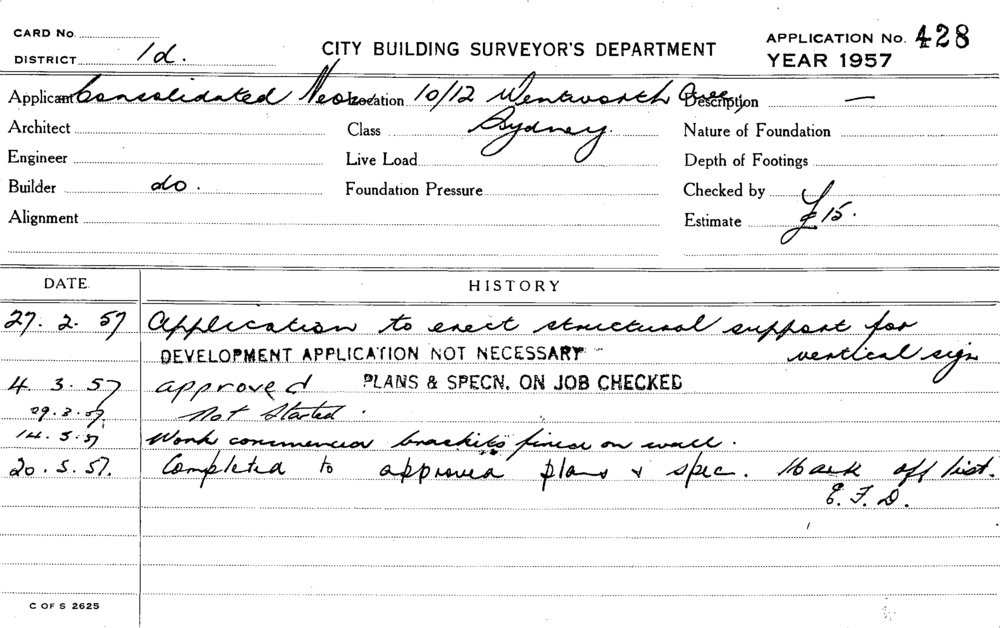 CARD No.
DISTRICT 1d.
CITY BUILDING SURVEYOR'S DEPARTMENT
APPLICATION No. 428
YEAR 1957
Applicant Consolidated Neon Location 10/12 Wentworth Ave, Description —
Architect Class Sydney. Nature of Foundation
Engineer Live Load Depth of Footings
Builder do. Foundation Pressure Checked by
Alignment Estimate £15.
DATE HISTORY
27. 2. 57 Application to erect structural support for
DEVELOPMENT APPLICATION NOT NECESSARY vertical sign
4. 3. 57 approved PLANS & SPECN. ON JOB CHECKED
29.3.57. Not Started.
14.5.57 Work commenced brackits fixed on wall.
20.5.57. Completed to approved plans & spec. Mark off list.
E.F.D.
C OF S 2625